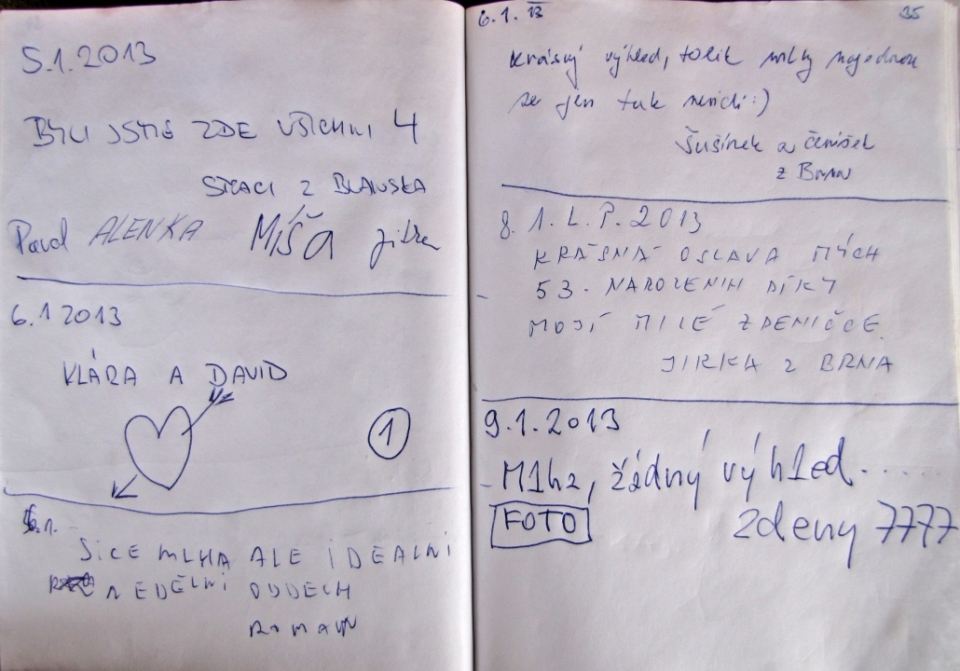 5.1.2013
BYLI JSME ZDE VŠICHNI 4
STCACI Z BLANSKA
Pavel ALENKA MÍŠA jitka
6.1 2013
KLÁRA A DAVID
1
6.1.
SICE MLHA ALE IDEÁLNÍ
NEDĚLNÍ ODDECH
ROMAN
6.1. 13
35
Krásný výhled, tolik mlhy najednou
se jen tak nevidí:)
Šušínek a
z Brna
8. 1. L. P. 2013
KRÁSNÁ OSLAVA MÝCH
53. NAROZENIN DÍKY
MOJÍ MILÉ ZDENIČCE.
JIRKA Z BRNA
9.1.2013
M1ha, žádný výh1ed.....
FOTO
zdeny 7777